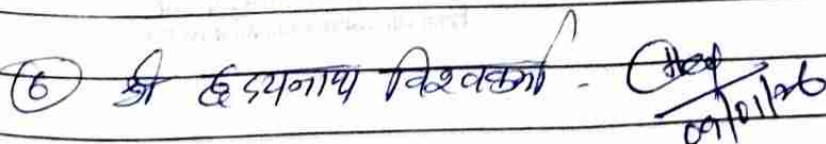 ⑥ श्री हृदयनाथ विश्वकर्मा -
09/01/26